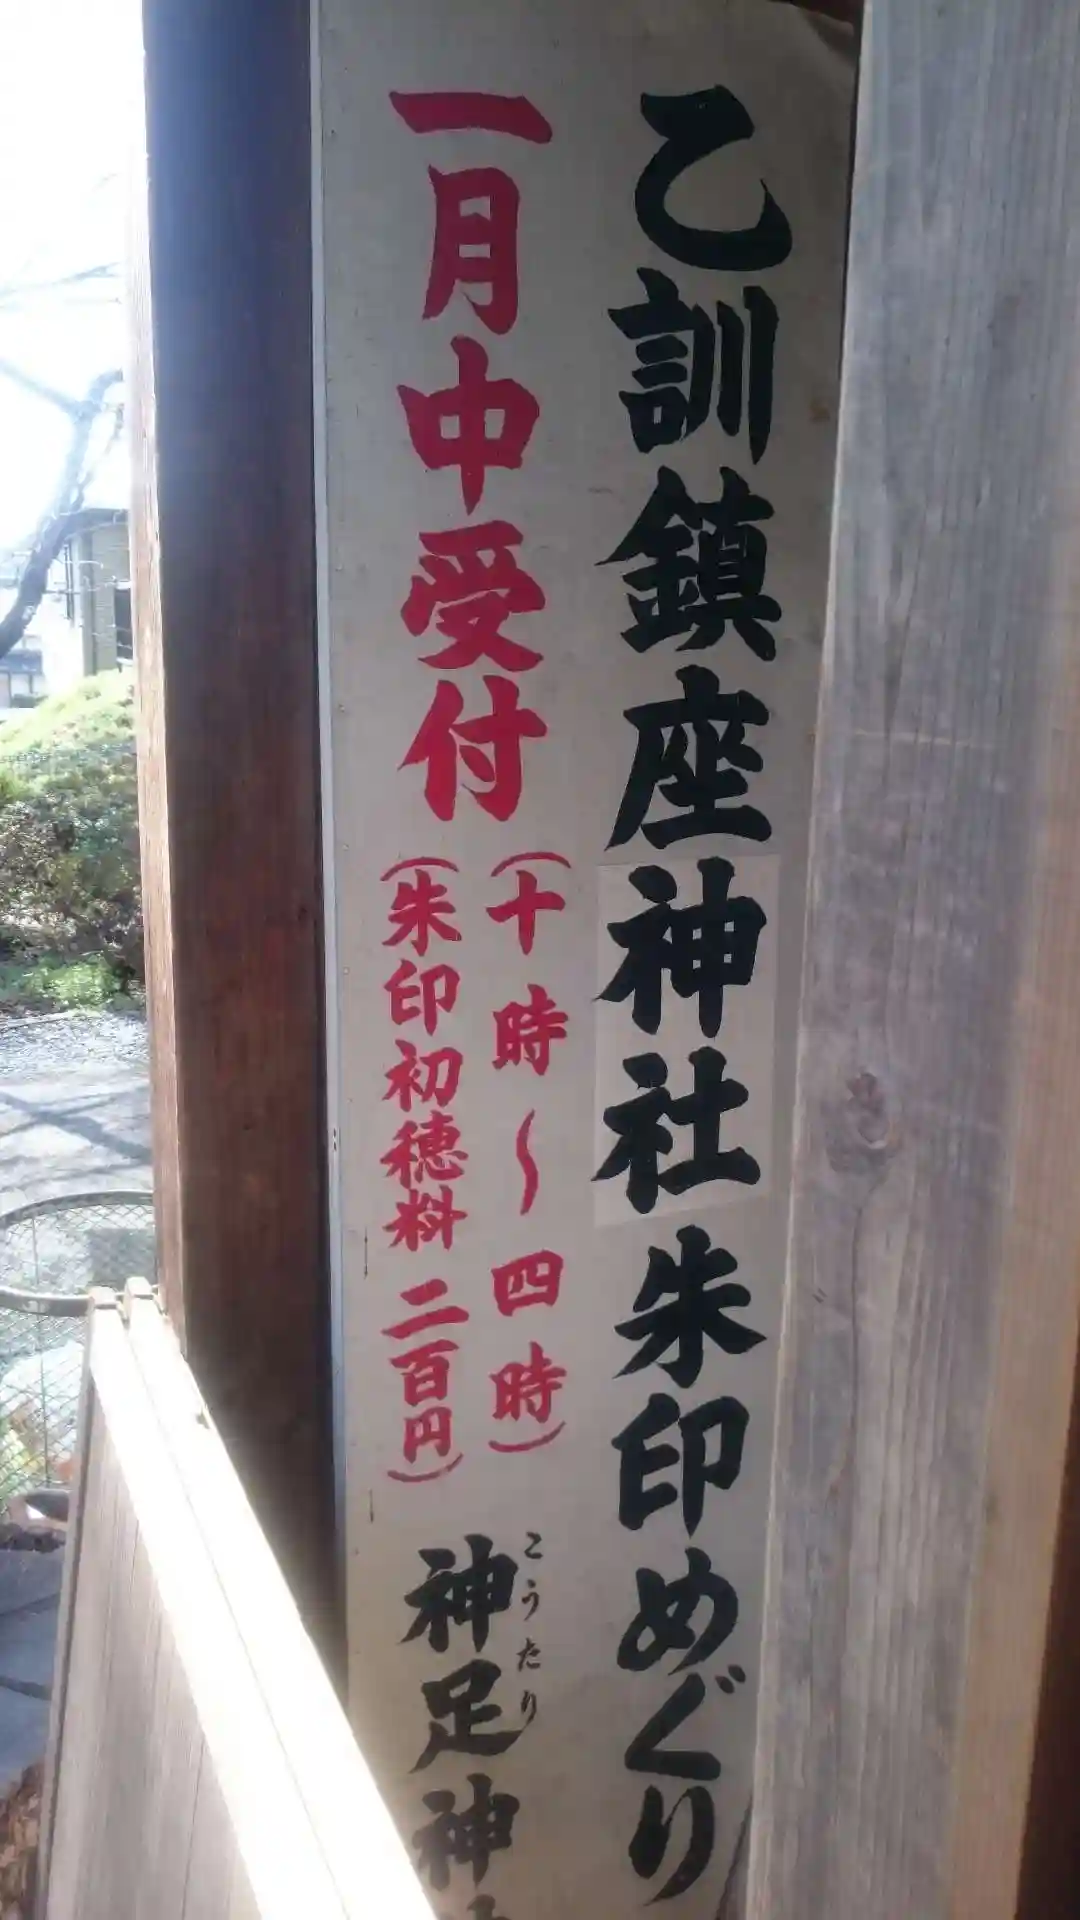 乙訓鎮座神社朱印めぐり
一月中受付
(十時〜四時)
(朱印初穂料 二百円)
こうたり
神足神